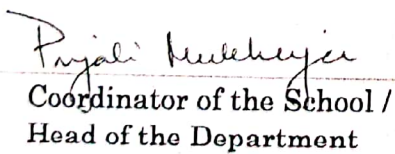 Pinjali Mukherjee
Coordinator of the School /
Head of the Department